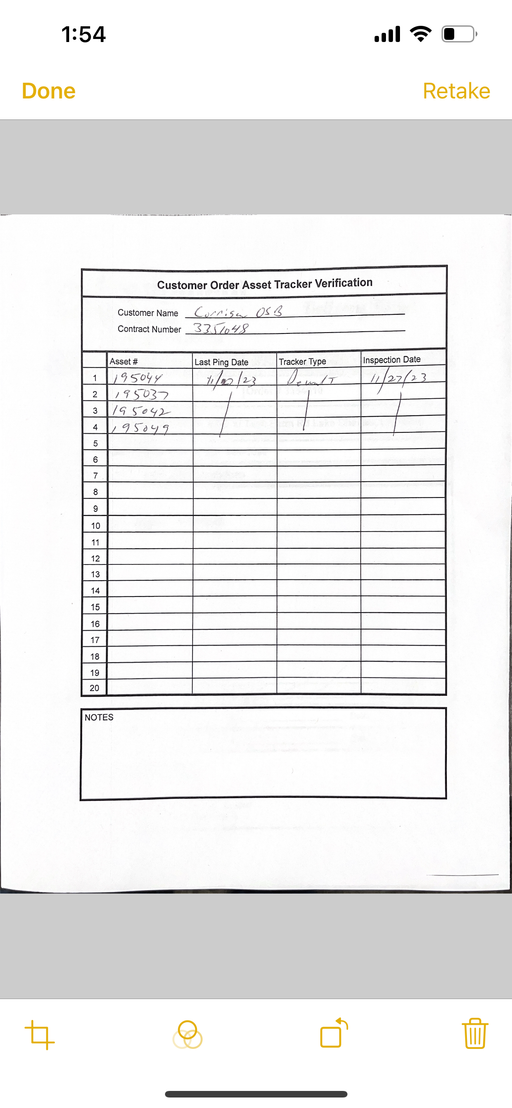 1:54
Done
Retake
Customer Order Asset Tracker Verification
Customer Name OSB
Contract Number 3351048
Asset # Last Ping Date Tracker Type Inspection Date
1 195044 11/27/23
2 195037
3 195042
4 195049
5
6
7
8
9
10
11
12
13
14
15
16
17
18
19
20
NOTES